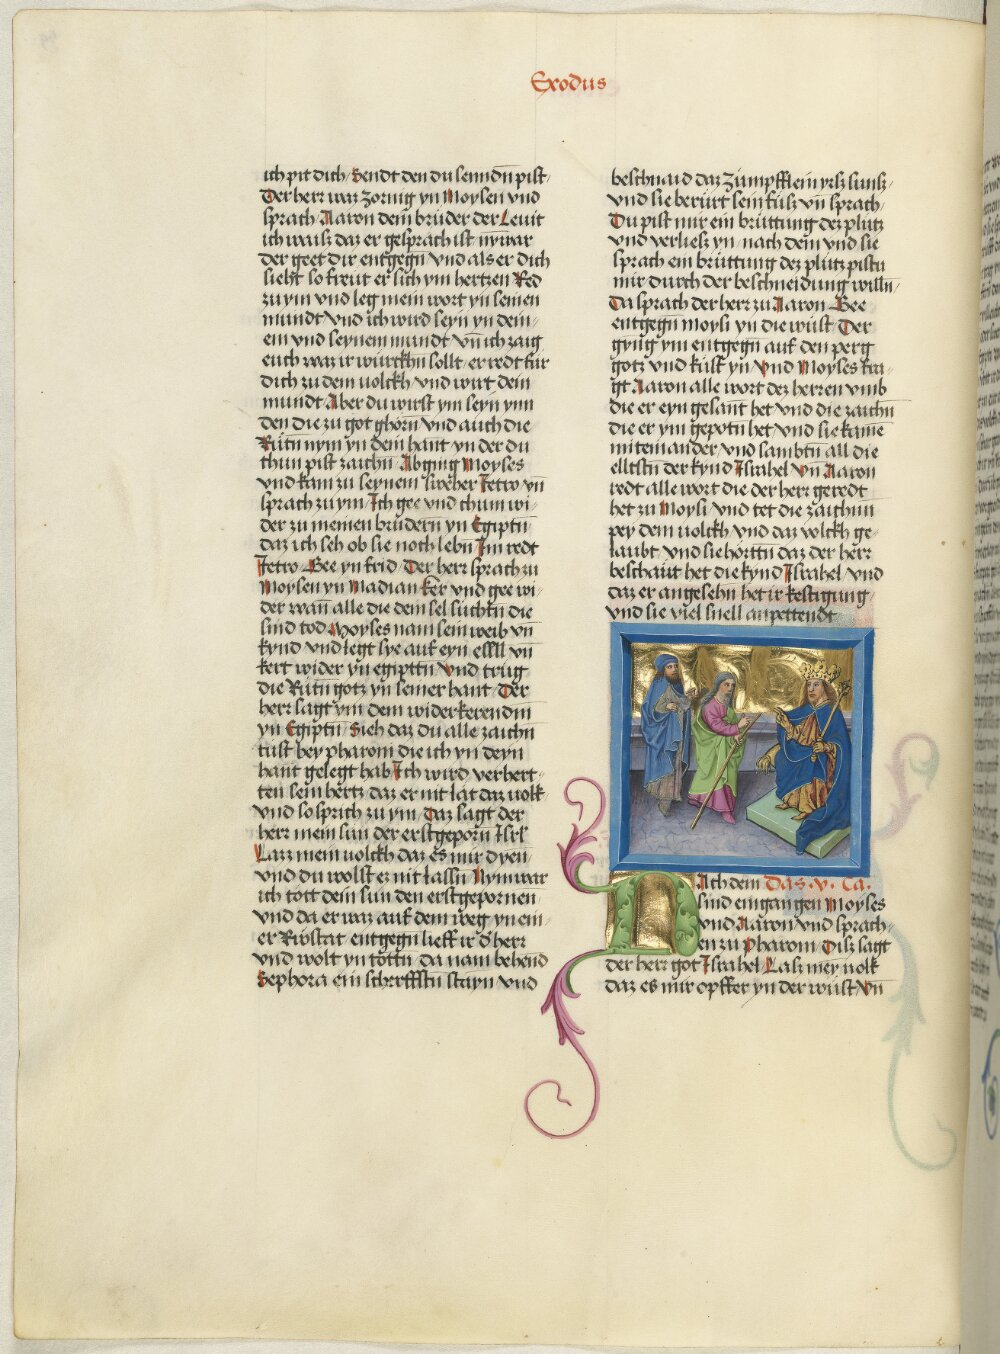 Exodus
ich pit dich / Sendt den du senndn pist /
Der herr war zornig yn Moysen vnd
sprach / Aaron dein bruder der Leuit
ich waisz daz er gesprach ist nymar
der geet dir entgegn vnd als er dich
sieht so freut er sich ym hertzen Red
zu ym vnd leg mein wort yn seinen
mundt vnd ich wird seyn yn dein /
em vnd seynem mundt vn̄ ich zaig
euch waz ir würckhn sollt / er redt für
dich zu dem uolckh vnd wirt dein
mundt Aber du wirst ym seyn ynn
den die zu got ghorn vnd auch die
Rutn nym yn dein hant / yn der du
thun pist zaichn / Abging Moyses
vnd kam zu seynem sweher Jetro vn̄
sprach zu ym / Ich gee vnd thum wi /
der zu meinen brudern yn Egiptn̄
daz ich seh ob sie noch lebn̄ Im redt
Jetro Gee yn frid / Der herr sprach zu
Moysen yn Madian ker vnd gee wi /
der wan̄ alle die dein sel suchtn̄ die
sind tod Moyses nam sein weib vn̄
kynd vnd legt sye auf eyn essll vn̄
kert wider yn egipttn̄ vnd trug
die Rutn̄ gotz yn seiner hant / Der
herr sagt ym dem widerkerendm̄
yn Egiptn̄ / Sieh daz du alle zaichn̄
tust bey pharom die ich yn deyn
hant gelegt hab / Ich wird verhert /
ten sein hertz daz er nit lat daz uolk
vnd so sprich zu ym / Daz sagt der
herr mein sun der erstgeporn̄ Isrl
Lasz mein uolckh daz es mir dyen /
vnd du wollst ez nit lassn̄ Nym war
ich tott dein sun den erstgepornen
vnd da er waz auf dem weg yn ein /
er Rw̄stat entgegn lieff ir d herr
vnd wolt yn töttn̄ da nam behend
Sephora ein scherffstn̄ stayn vnd
beschnaid daz zumpfflein yrsz sunsz /
vnd sie berürt sein füsz vn̄ sprach /
Du pist mir ein brüttung dez plutz
vnd verliesz yn / nach dem vnd sie
sprach ein brüttung dez plutz pistu
mir durch der beschneidung willn̄ /
Da sprach der herz zu Aaron Gee
entgegn moysi yn die wüst / Der
gyng ym entgegn auf den perg
gotz vnd küst yn vnd Moyses sa /
gt Aaron alle wort dez herren vmb
die er eyn gesant het vnd die zaichn̄
die er ym gepotn̄ het / vnd sie kame
miteinander / vnd sambtn̄ all die
elltstn̄ der kynd Israhel vn̄ Aaron
redt alle wort die der herr geredt
het zu Moysi vnd tet die zaichnn
pey dem uolckh vnd daz volckh ge /
laubt / vnd sie hörttn̄ daz der herr
beschaut het die kynd Israhel vnd
daz er angesehn het ir kestigung /
vnd sie viel snell anpettendt
NAch dem Das . v . Ca .
sind eingangen Moyses
vnd Aaron vnd sprach /
en zu Pharom Disz sagt
der herr got Israhel Lasz mey uolk
daz es mir opffer yn der wüst Vn̄